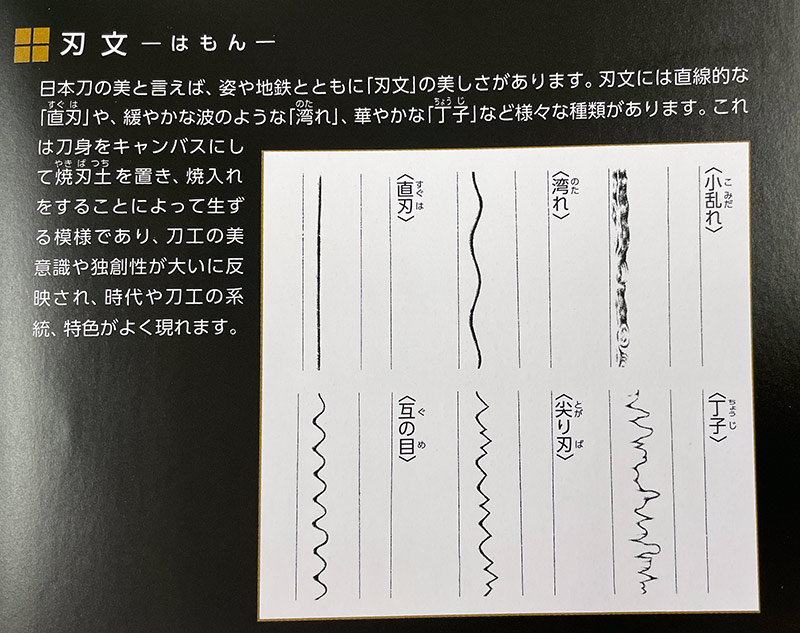 刃文―はもん―
日本刀の美と言えば、姿や地鉄とともに「刃文」の美しさがあります。刃文には直線的な
すぐは のた ちょうじ
「直刃」や、緩やかな波のような「湾れ」、華やかな「丁子」など様々な種類があります。これ
は刀身をキャンバスにし
やきばつち
て焼刃土を置き、焼入れ
をすることによって生ず
る模様であり、刀工の美
意識や独創性が大いに反
映され、時代や刀工の系
統、特色がよく現れます。
こみだ
〈小乱れ〉
のた
〈湾れ〉
すぐは
〈直刃〉
ちょうじ
〈丁子〉
とがば
〈尖り刃〉
ぐめ
〈互の目〉